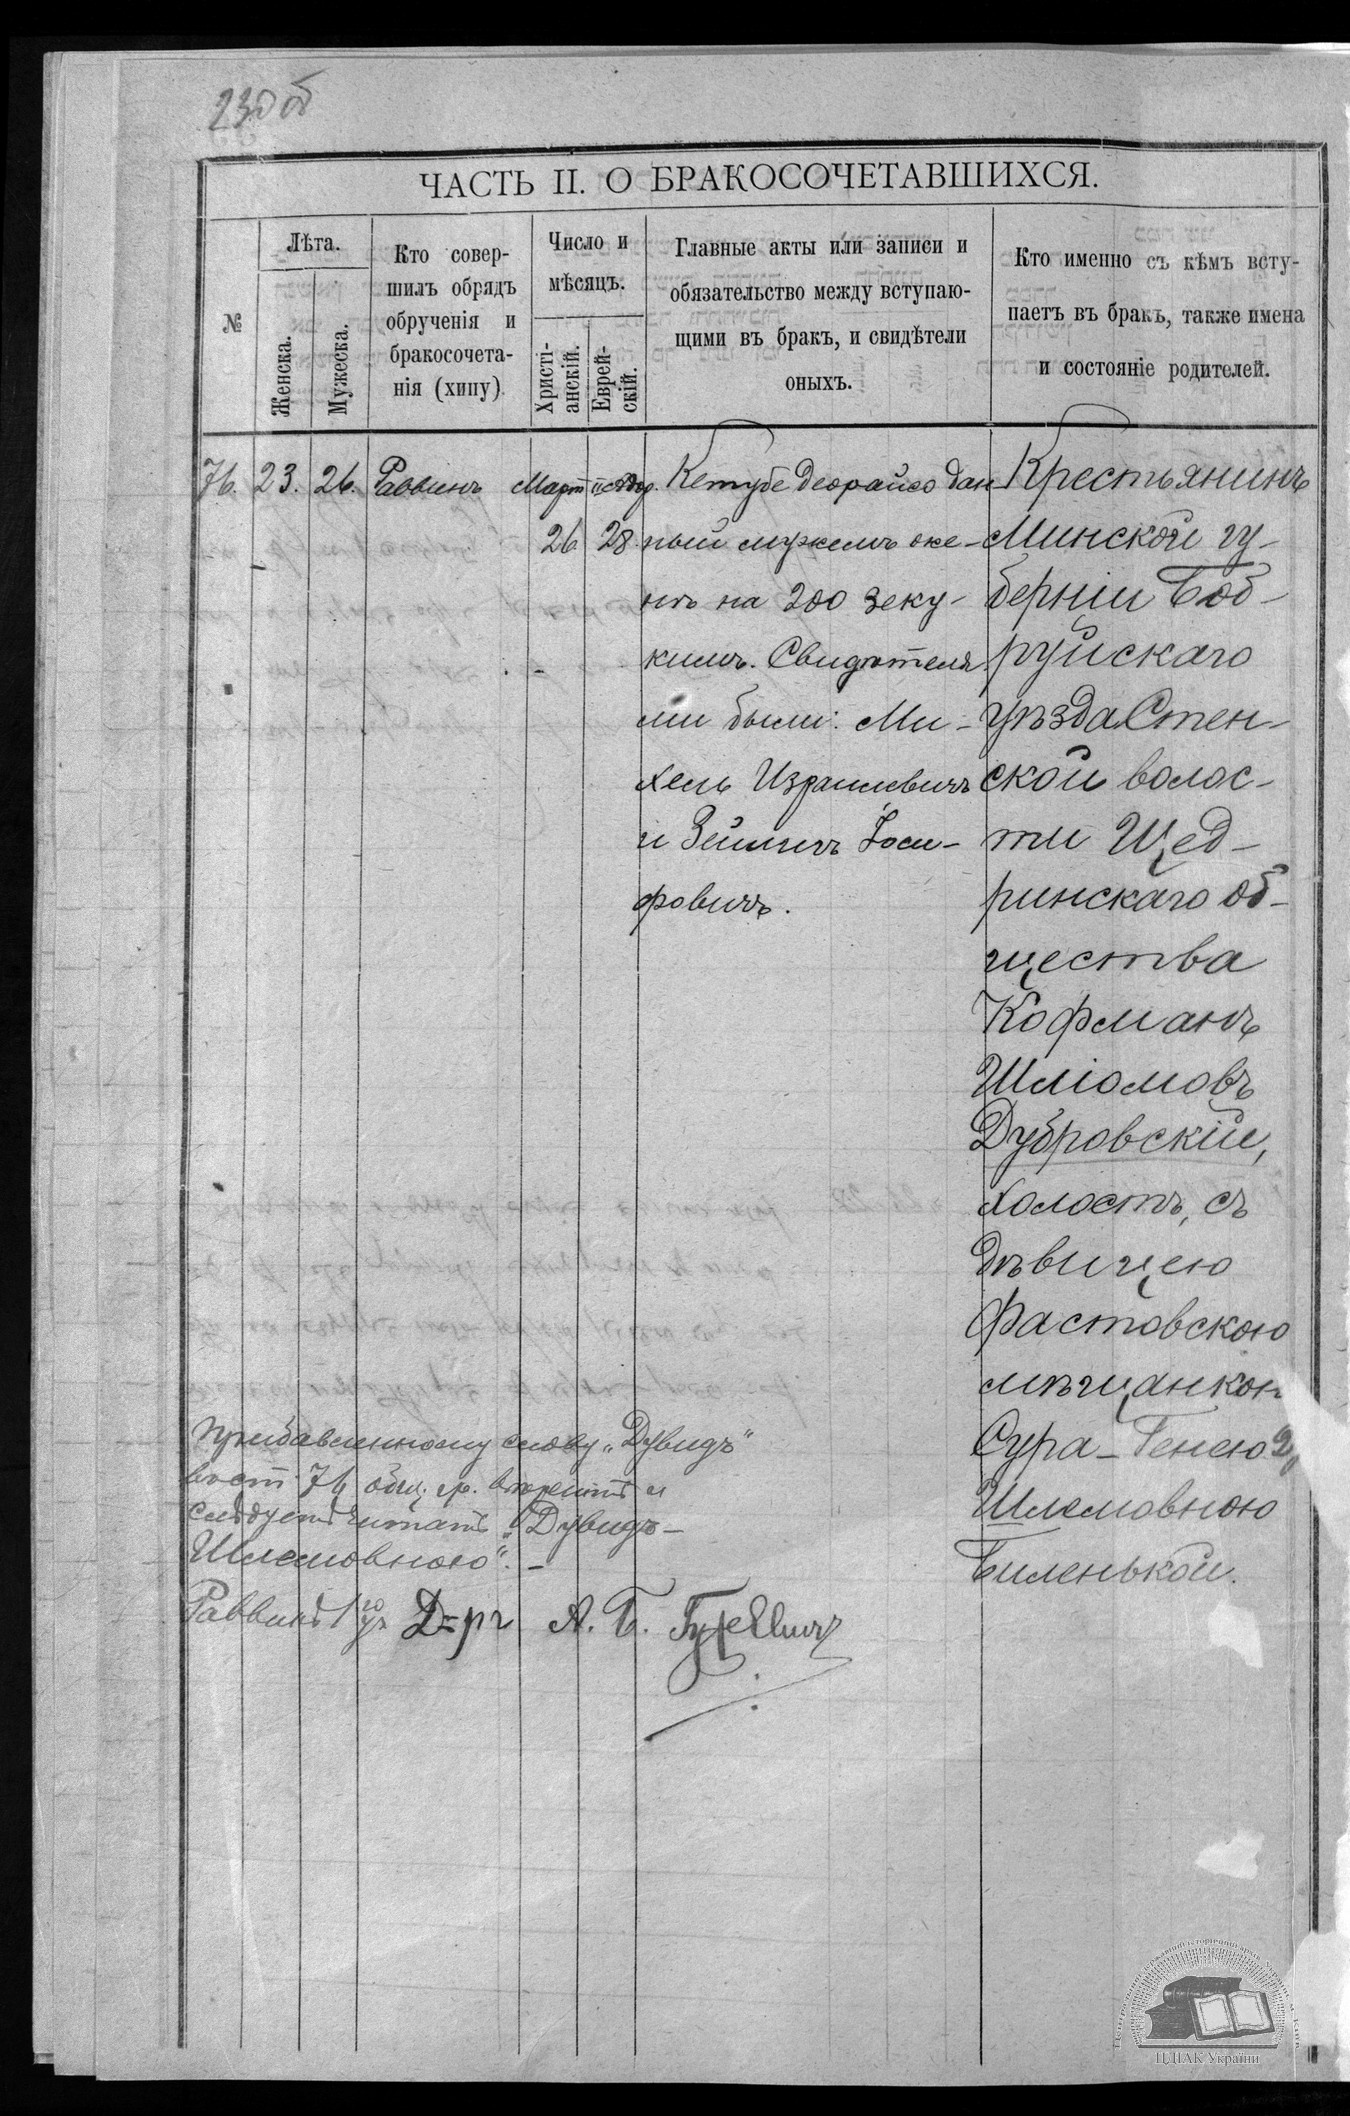 230 об
ЧАСТЬ II. О БРАКОСОЧЕТАВШИХСЯ.
№
Лѣта.
Женска.
Мужеска.
Кто совер-
шилъ обрядъ
обрученія и
бракосочета-
нія (хипу)
Число и
мѣсяцъ.
Христі-
анскій.
Еврей-
скій.
Главные акты или записи и
обязательство между вступаю-
щими въ бракъ, и свидѣтели
оныхъ.
Кто именно съ кѣмъ всту-
паетъ въ бракъ, также имена
и состояніе родителей.
76.
23.
26.
Раввинъ
Март
26
28
Кетубе деорайсо дан-
ный мужемъ же-
нѣ на 200 зеку-
кимъ. Свидѣтеля
ми были: Ми-
хель Израилевичъ
и Зейликъ Іоси-
фовичъ.
Крестьянинъ
Минской гу-
берніи Боб-
руйскаго
уѣзда Стен-
ской волос-
ти Щед-
ринскаго об-
щества
Кофманъ
Шліомовъ
Дубровскій,
холостъ, съ
дѣвицею
Фастовскою
мѣщанкою
Сура-Генею
Шлемовною
Биленькой.
Прибавленному слову „Дувидъ“
въ ст. 76 вѣрить и
слѣдуетъ читать „Дувидъ-
Шлемовною“. –
Раввинъ 1го уч. Д-ръ А. Б. Гуревичъ
ЦДІАК України